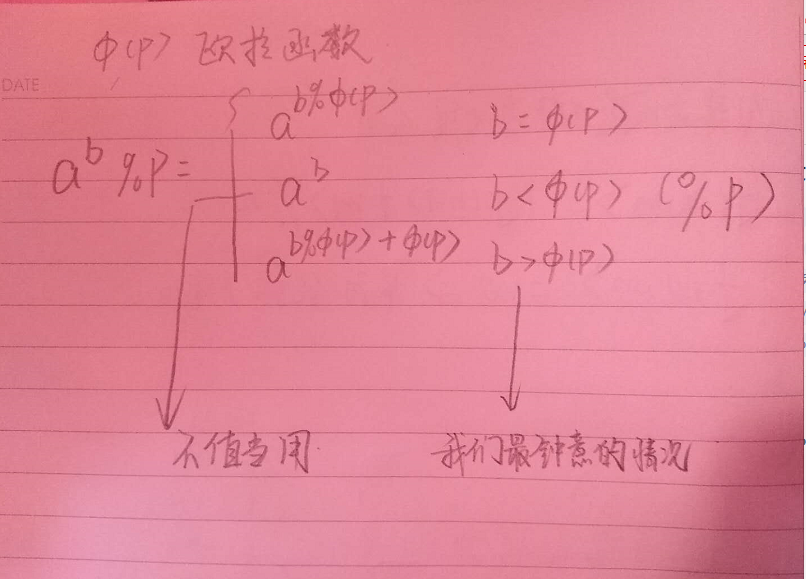 φ(p) 欧拉函数
DATE
a^{b%φ(p)} b = φ(p)
a^b %p = { a^b b < φ(p) (%p)
a^{b%φ(p)+φ(p)} b > φ(p)
不值当用 我们最钟意的情况